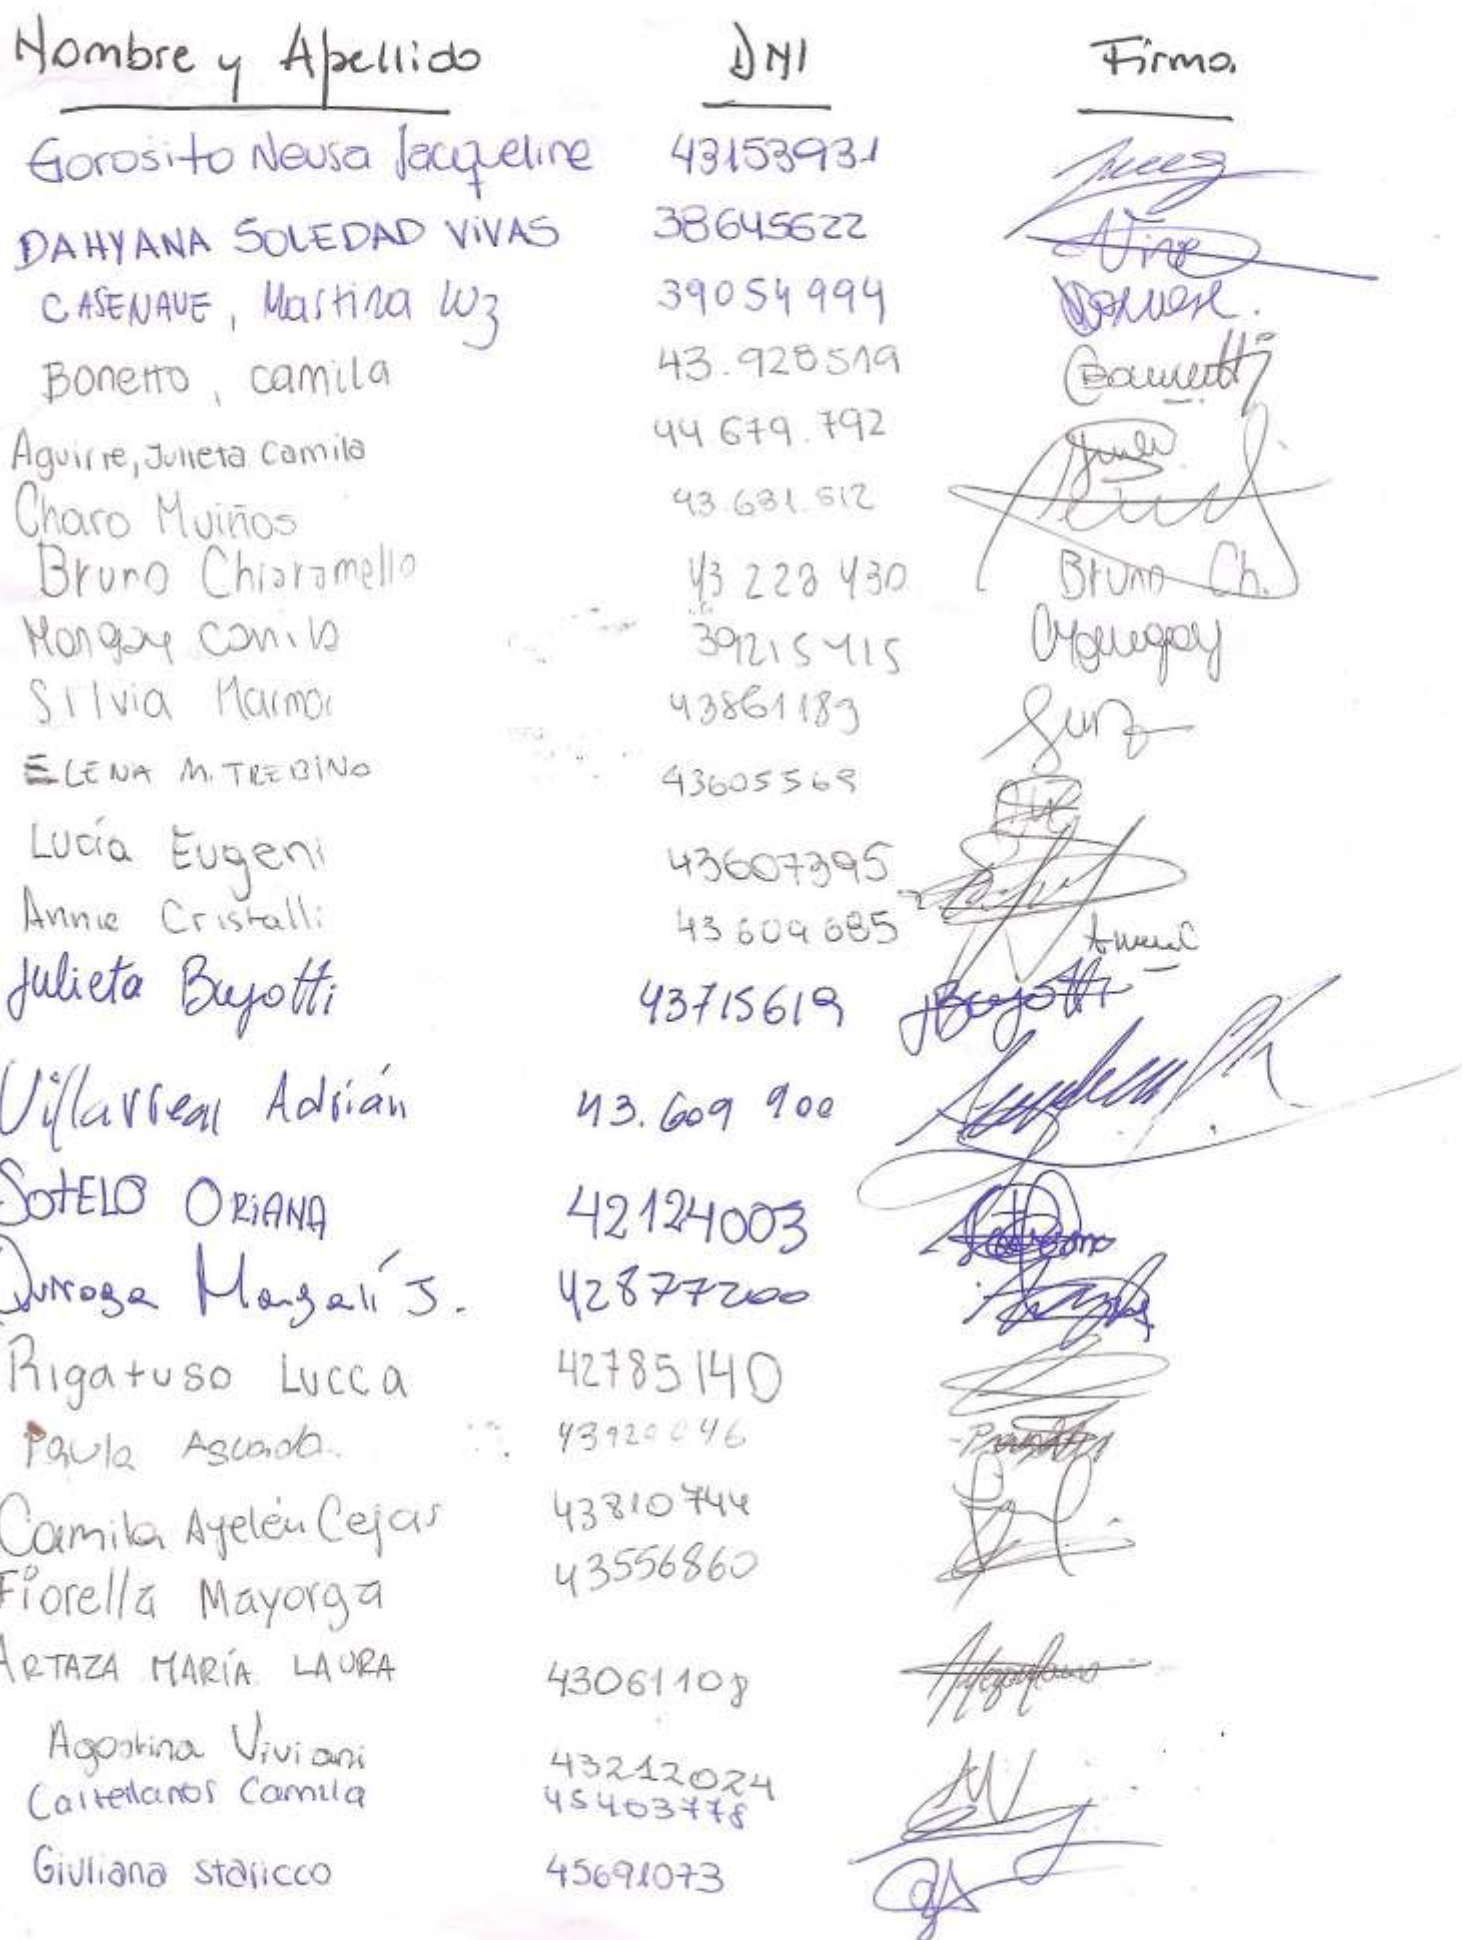 Nombre y Apellido DNI Firma
Gorosito Neusa Jacqueline 43153931
DAHYANA SOLEDAD VIVAS 38645622
CASENAVE, Martina Luz 39054994
Bonetto, camila 43.928519
Aguirre, Julieta Camila 44 679.792
Charo Muiños 43.631.512
Bruno Chiaramello 43 223 430 Bruno Ch.
Mongay Camila 39215415
Silvia 43861183
ELENA M. TREBINO 43605569
Lucía Eugeni 43607395
Annie Cristalli 43 609 685
Julieta Buyotti 43715619 JBuyotti
Villarreal Adrián 43.609 900
SOTELO ORIANA 42124003
Quiroga Margalí J. 42877200
Rigatuso Lucca 42785140
Paula 43920046
Camila Ayelén Cejas 43810744
Fiorella Mayorga 43556860
ARTAZA MARÍA LAURA 43061108
Agostina Viviani 43212024
Castellanos Camila 45403778
Giuliana Staricco 45691073